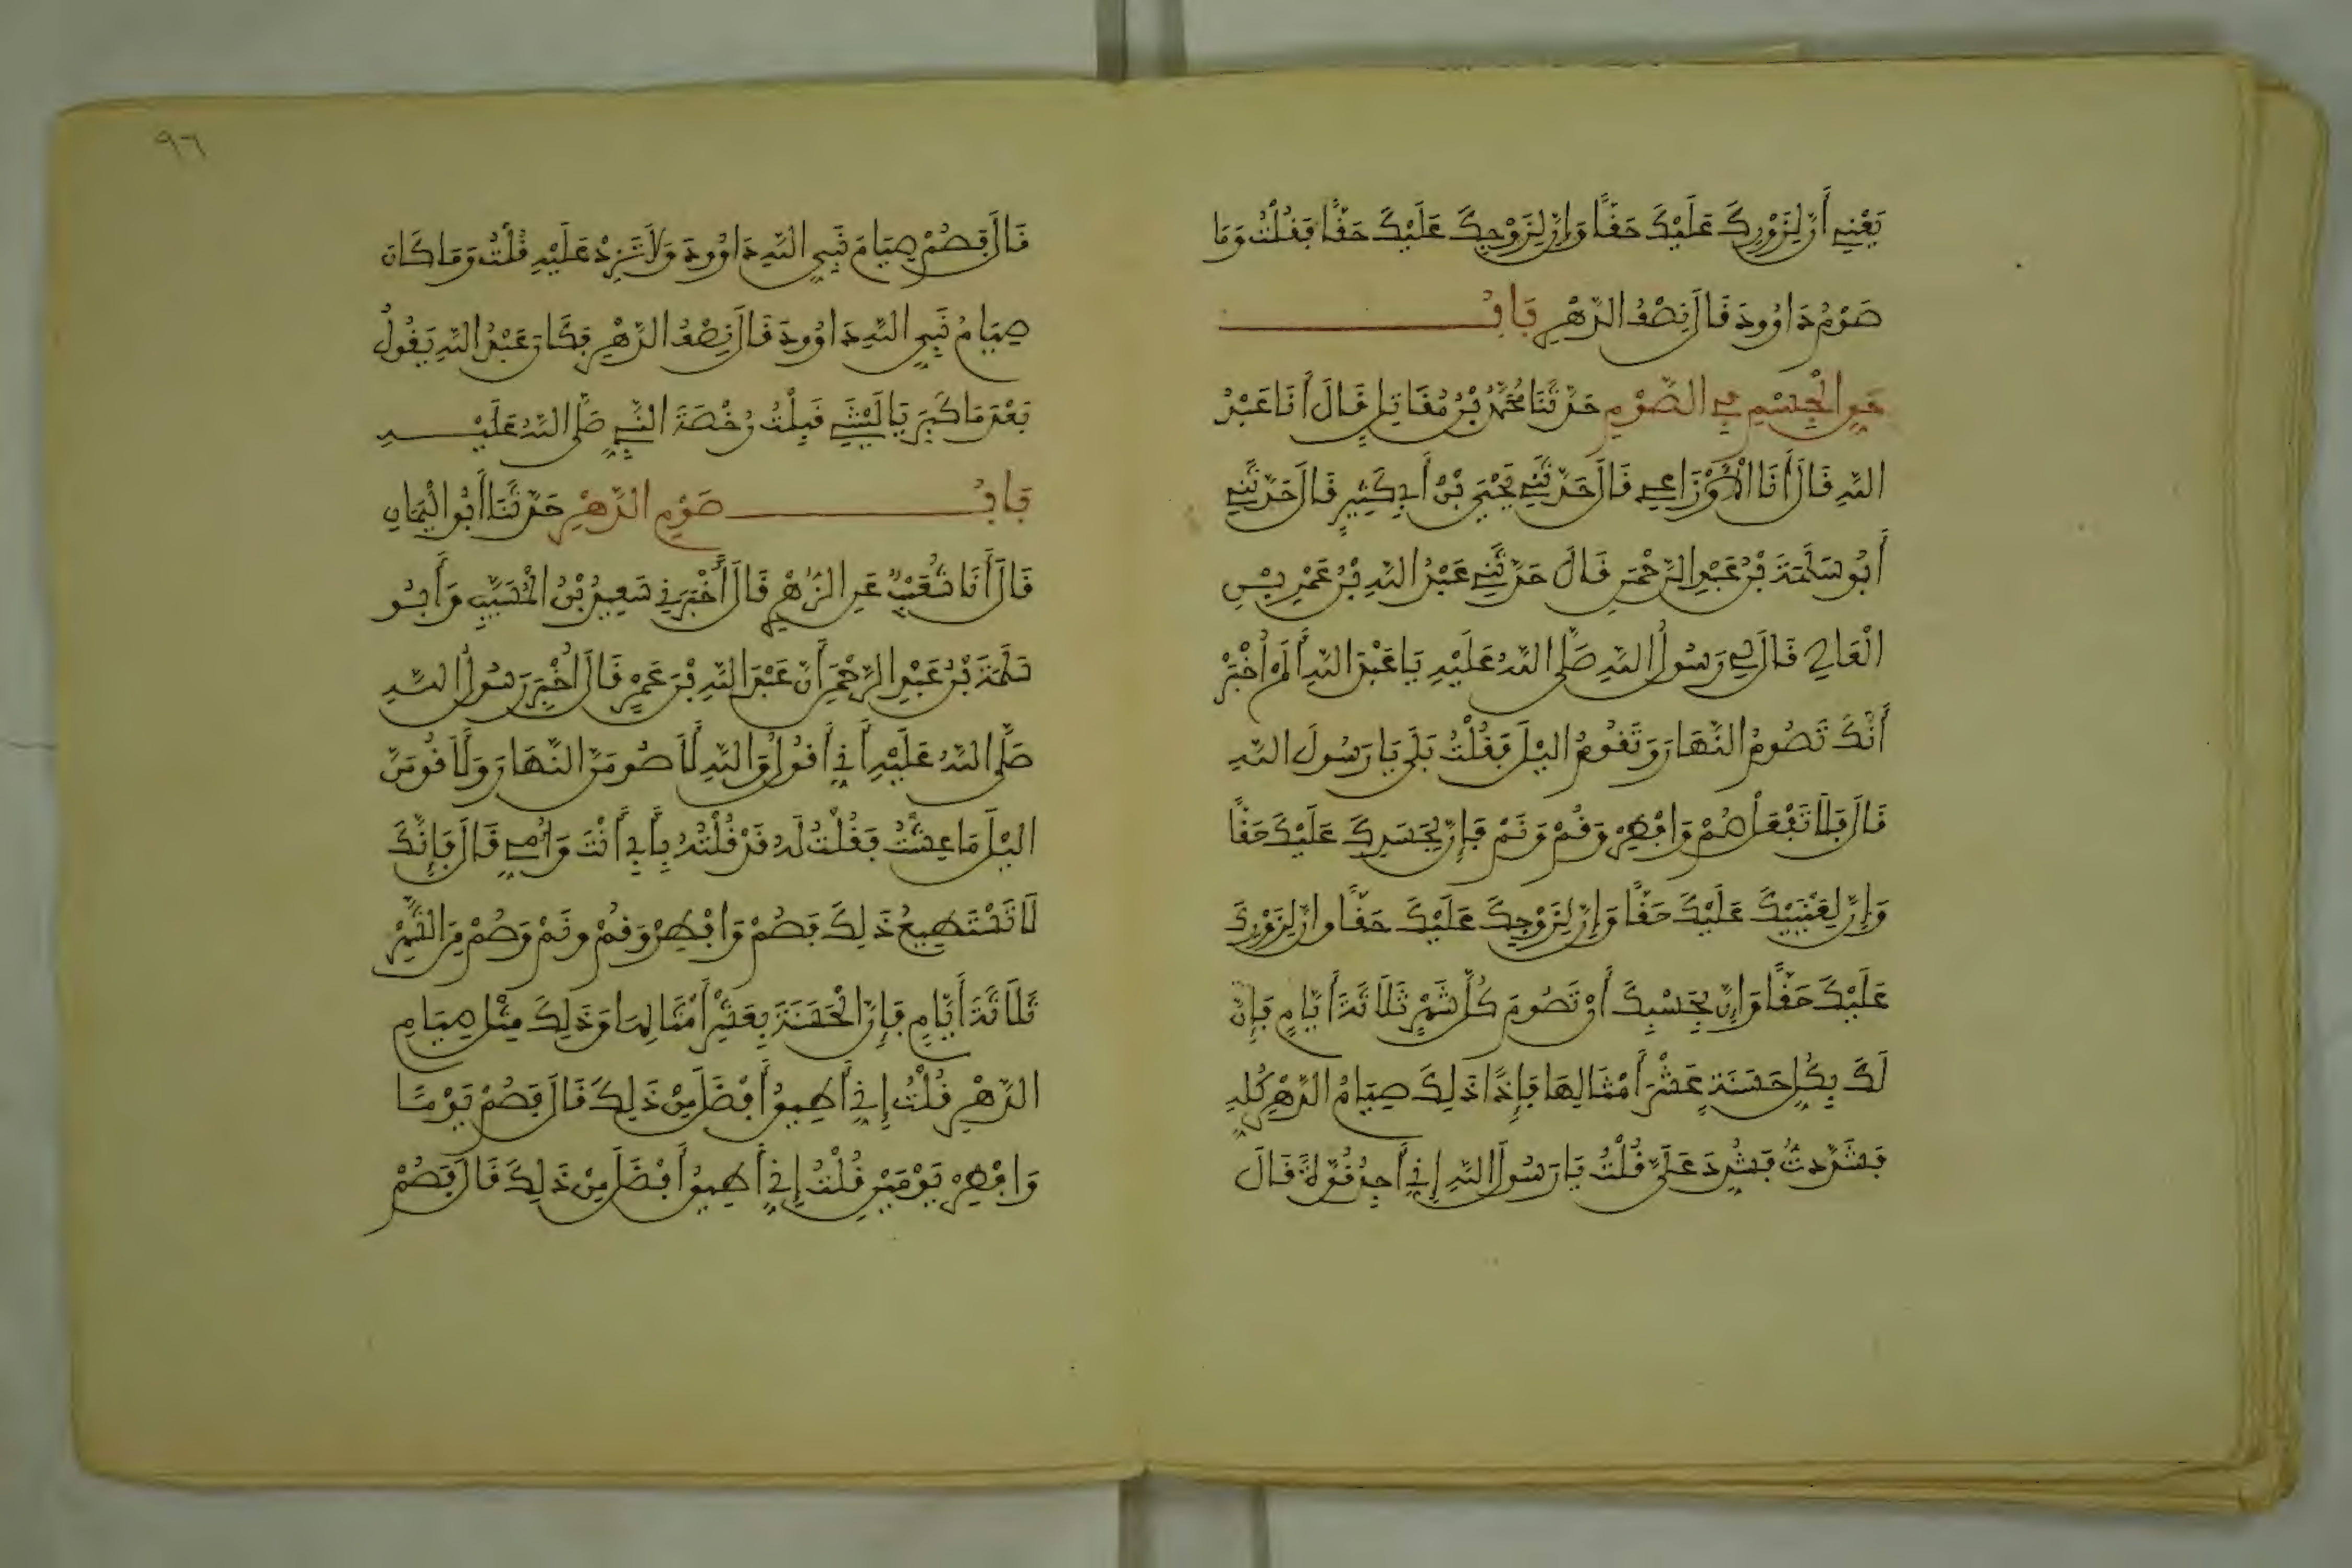 يَعْنِي أَنَّ لِزَوْرِكَ عَلَيْكَ حَقًّا وَإِنَّ لِزَوْجِكَ عَلَيْكَ حَقًّا فَقُلْتُ وَمَا
صَوْمُ دَاوُودَ قَالَ نِصْفُ الدَّهْرِ بَابُ
حَقِّ الْجِسْمِ فِي الصَّوْمِ حَدَّثَنَا مُحَمَّدُ بْنُ مُقَاتِلٍ قَالَ أَنَا عَبْدُ
اللَّهِ قَالَ أَنَا الْأَوْزَاعِي قَالَ حَدَّثَنِي يَحْيَى بْنُ أَبِي كَثِيرٍ قَالَ حَدَّثَنِي
أَبُو سَلَمَةَ بْنُ عَبْدِ الرَّحْمَنِ قَالَ حَدَّثَنِي عَبْدُ اللَّهِ بْنُ عَمْرِو بْنِ
الْعَاصِي قَالَ لِي رَسُولُ اللَّهِ صَلَّى اللَّهُ عَلَيْهِ يَا عَبْدَ اللَّهِ أَلَمْ أُخْبَرْ
أَنَّكَ تَصُومُ النَّهَارَ وَتَقُومُ الَّيْلَ فَقُلْتُ بَلَى يَا رَسُولَ اللَّهِ
قَالَ فَلَا تَفْعَلْ صُمْ وَافْطِرْ وَقُمْ وَنَمْ فَإِنَّ لِجَسَدِكَ عَلَيْكَ حَقًّا
وَإِنَّ لِعَيْنَيْكَ عَلَيْكَ حَقًّا وَإِنَّ لِزَوْجِكَ عَلَيْكَ حَقًّا وَإِنَّ لِزَوْرِكَ
عَلَيْكَ حَقًّا وَإِنَّ بِحَسْبِكَ أَنْ تَصُومَ كُلَّ شَهْرٍ ثَلَاثَةَ أَيَّامٍ فَإِنَّ
لَكَ بِكُلِّ حَسَنَةٍ عَشْرَ أَمْثَالِهَا فَإِذًا ذَلِكَ صِيَامُ الدَّهْرِ كُلِّهِ
فَشَدَّدتُّ فَشُدِّدَ عَلَيَّ قُلْتُ يَا رَسُولَ اللَّهِ إِنِّي أَجِدُ قُوَّةً قَالَ
٩٦
قَالَ فَصُمْ صِيَامَ نَبِيِّ اللَّهِ دَاوُودَ وَلَا تَزِدْ عَلَيْهِ قُلْتُ وَمَا كَانَ
صِيَامُ نَبِيِّ اللَّهِ دَاوُودَ قَالَ نِصْفُ الدَّهْرِ فَكَانَ عَبْدُ اللَّهِ يَقُولُ
بَعْدَ مَا كَبِرَ يَا لَيْتَنِي قَبِلْتُ رُخْصَةَ النَّبِيِّ صَلَّى اللَّهُ عَلَيْهِ
بَابُ صَوْمِ الدَّهْرِ حَدَّثَنَا أَبُو الْيَمَانِ
قَالَ أَنَا شُعَيْبٌ عَنِ الزُّهْرِيِّ قَالَ أَخْبَرَنِي سَعِيدُ بْنُ الْمُسَيَّبِ وَأَبُو
سَلَمَةَ بْنُ عَبْدِ الرَّحْمَنِ أَنَّ عَبْدَ اللَّهِ بْنَ عَمْرٍو قَالَ أُخْبِرَ رَسُولُ اللَّهِ
صَلَّى اللَّهُ عَلَيْهِ أَنِّي أَقُولُ وَاللَّهِ لَأَصُومَنَّ النَّهَارَ وَلَأَقُومَنَّ
الَّيْلَ مَا عِشْتُ فَقُلْتُ لَهُ قَدْ قُلْتُهُ بِأَبِي أَنْتَ وَأُمِّي قَالَ فَإِنَّكَ
لَا تَسْتَطِيعُ ذَلِكَ فَصُمْ وَافْطِرْ وَقُمْ وَنَمْ وَصُمْ مِنَ الشَّهْرِ
ثَلَاثَةَ أَيَّامٍ فَإِنَّ الْحَسَنَةَ بِعَشْرِ أَمْثَالِهَا وَذَلِكَ مِثْلُ صِيَامِ
الدَّهْرِ قُلْتُ إِنِّي أُطِيقُ أَفْضَلَ مِنْ ذَلِكَ قَالَ فَصُمْ يَوْمًا
وَافْطِرْ يَوْمَيْنِ قُلْتُ إِنِّي أُطِيقُ أَفْضَلَ مِنْ ذَلِكَ قَالَ فَصُمْ